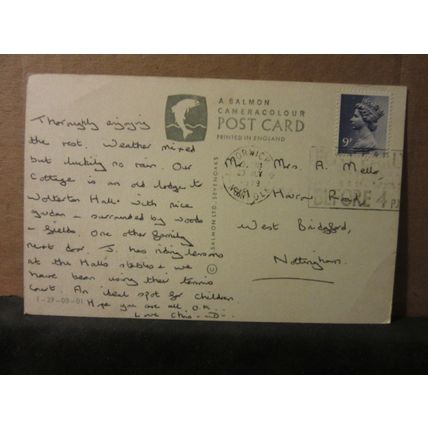 A SALMON
CAMERACOLOUR
POST CARD
PRINTED IN ENGLAND
SALMON LTD. SEVENOAKS
9P
NORWICH
BEFORE 4 P
Thoroughly enjoying
the rest. Weather mixed
but luckily no rain. Our
Cottage is an old lodge to
Wolterton Hall - with nice
garden - surrounded by woods
+ fields. One other family
next door. J. has riding lessons
at the Hall's stables + we
have been using their tennis
court. An ideal spot for children
Hope you are all O.K.
Love Chris
1-27-03-01
Mr. Mrs. A. Mello
West Bridgford,
Nottingham.